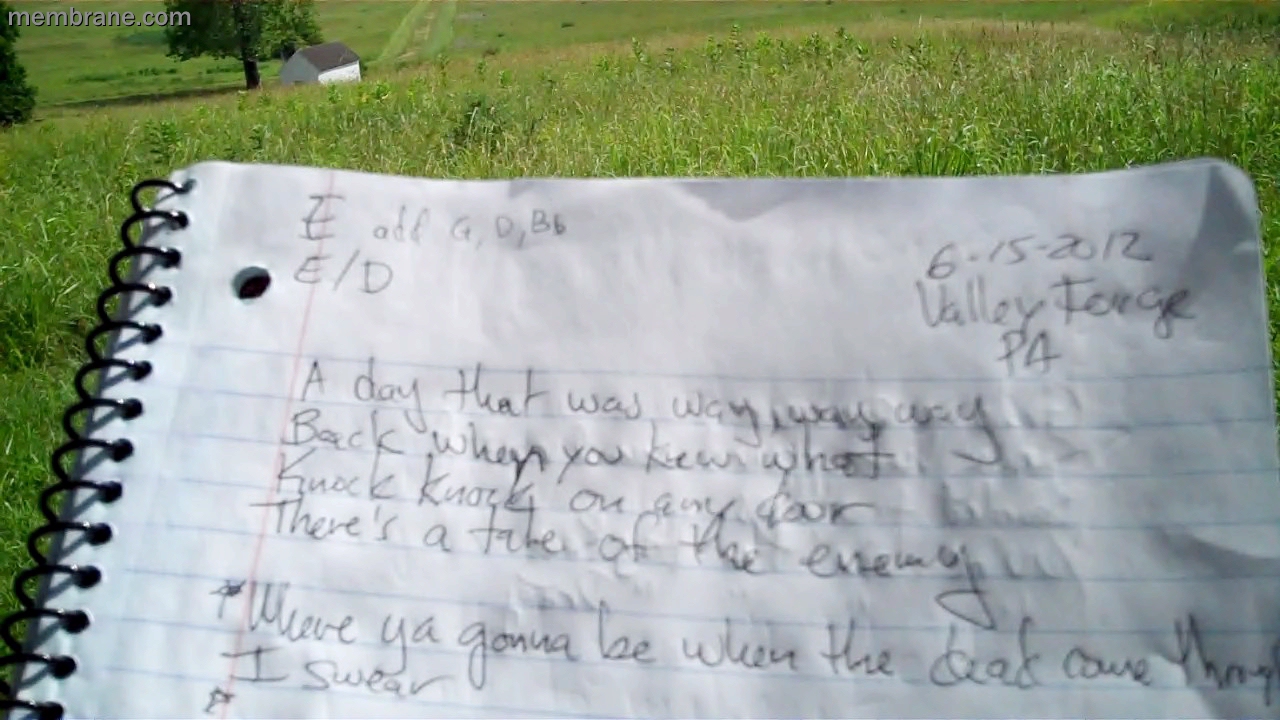 membrane.com
E add G, D, Bb
E/D
6-15-2012
Valley Forge
PA
A day that was way, way, way
Back when you knew what
Knock Knock on any door
There's a tale of the enemy
*Where ya gonna be when the deal come through
I swear
*